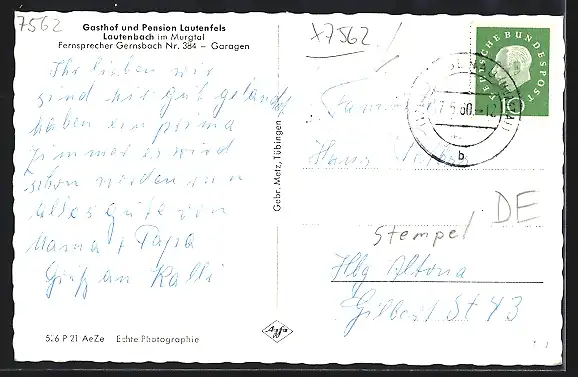 7562
Gasthof und Pension Lautenfels
Lautenbach im Murgtal
Fernsprecher Gernsbach Nr. 384 — Garagen
x7562
DEUTSCHE BUNDESPOST
Ihr lieben wir
sind hir gut gelandet
haben ein prima
Zimmer es wird
schon werden nun
alles gute von
Mama + Papa
Gruß an Kalli
Gebr. Metz, Tübingen
Familie
Hans
b
DE
Stempel
Hbg Altona
Gilbert St 43
526 P 21 AeZe Echte Photographie
Agfa